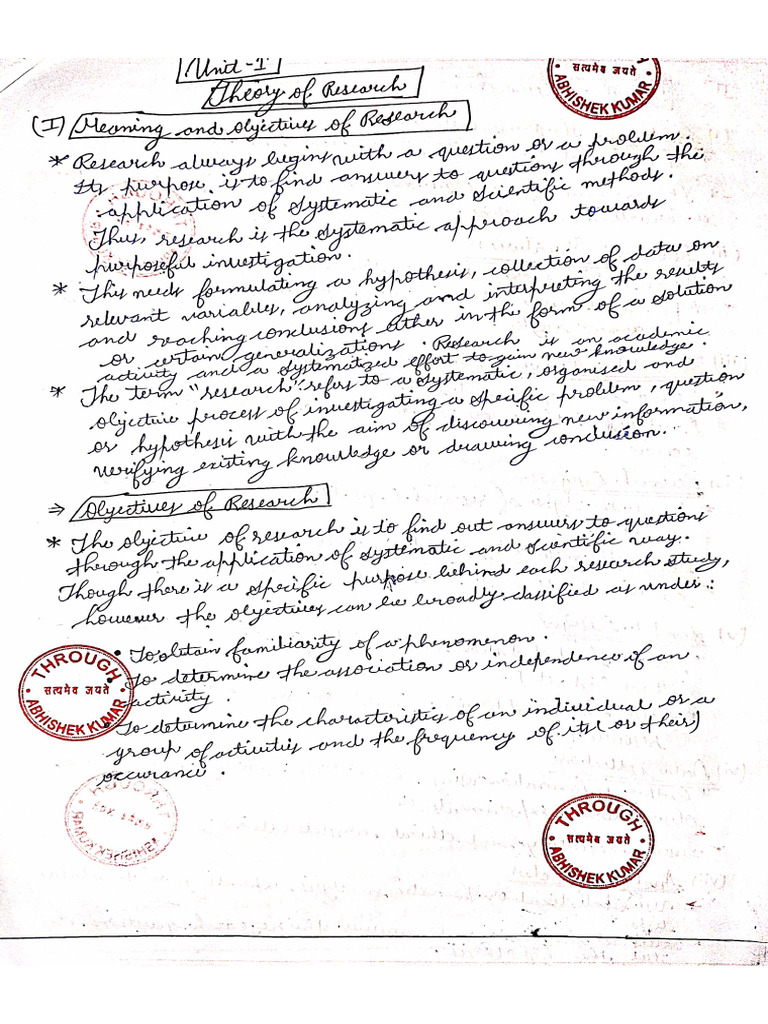 Unit-I
Theory of Research
(I) Meaning and Objectives of Research
* Research always begins with a question or a problem.
Its purpose is to find answers to questions through the
application of systematic and scientific methods.
Thus, research is the systematic approach towards
purposeful investigation.
* This needs formulating a hypothesis, collection of data on
relevant variables, analyzing and interpreting the results
and reaching conclusions either in the form of a solution
or certain generalizations. Research is an academic
activity and a systematized effort to gain new knowledge.
* The term "research" refers to a systematic, organised and
objective process of investigating a specific problem, question
or hypothesis with the aim of discovering new information,
verifying existing knowledge or drawing conclusion.
⇒ Objectives of Research
* The objective of research is to find out answers to questions
through the application of systematic and scientific way.
Though there is a specific purpose behind each research study,
however the objectives can be broadly classified as under:
• To obtain familiarity of a phenomenon.
• To determine the association or independence of an
activity.
• To determine the characteristics of an individual or a
group of activities and the frequency of its (or their)
occurance.
सत्यमेव जयते
ABHISHEK KUMAR
THROUGH
सत्यमेव जयते
ABHISHEK KUMAR
THROUGH
सत्यमेव जयते
ABHISHEK KUMAR